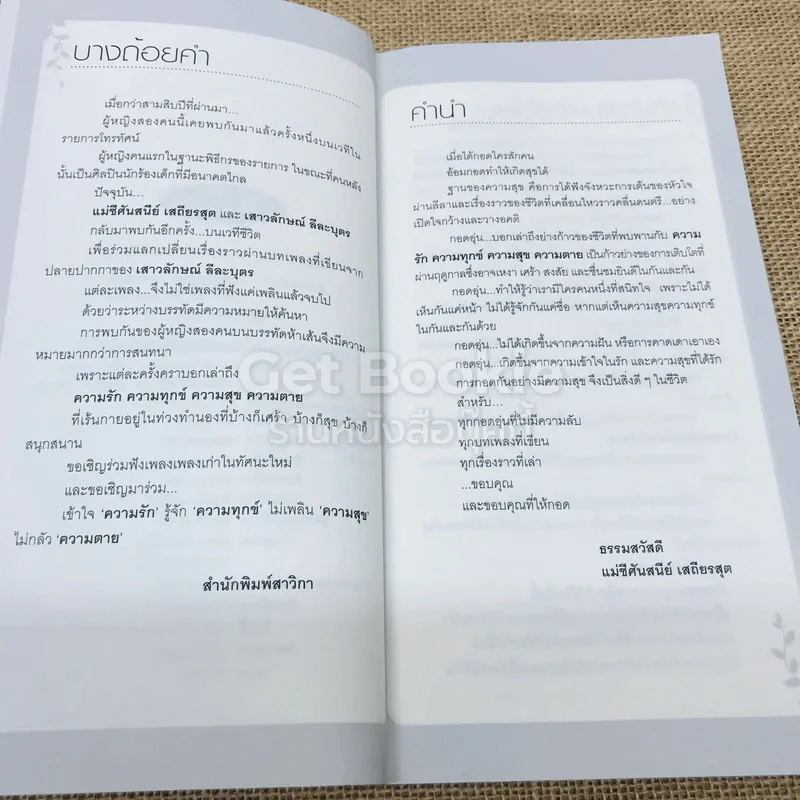 บางถ้อยคำ
เมื่อกว่าสามสิบปีที่ผ่านมา...
ผู้หญิงสองคนนี้เคยพบกันมาแล้วครั้งหนึ่งบนเวทีใน
รายการโทรทัศน์
ผู้หญิงคนแรกในฐานะพิธีกรของรายการ ในขณะที่คนหลัง
นั้นเป็นศิลปินนักร้องเด็กที่มีอนาคตไกล
ปัจจุบัน...
แม่ชีศันสนีย์ เสถียรสุต และ เสาวลักษณ์ ลีละบุตร
กลับมาพบกันอีกครั้ง...บนเวทีชีวิต
เพื่อร่วมแลกเปลี่ยนเรื่องราวผ่านบทเพลงที่เขียนจาก
ปลายปากกาของ เสาวลักษณ์ ลีละบุตร
แต่ละเพลง...จึงไม่ใช่เพลงที่ฟังแค่เพลินแล้วจบไป
ด้วยว่าระหว่างบรรทัดมีความหมายให้ค้นหา
การพบกันของผู้หญิงสองคนบนบรรทัดห้าเส้นจึงมีความ
หมายมากกว่าการสนทนา
เพราะแต่ละครั้งคราบอกเล่าถึง
ความรัก ความทุกข์ ความสุข ความตาย
ที่เร้นกายอยู่ในท่วงทำนองที่บ้างก็เศร้า บ้างก็สุข บ้างก็
สนุกสนาน
ขอเชิญร่วมฟังเพลงเพลงเก่าในทัศนะใหม่
และขอเชิญมาร่วม...
เข้าใจ ‘ความรัก’ รู้จัก ‘ความทุกข์’ ไม่เพลิน ‘ความสุข’
ไม่กลัว ‘ความตาย’
สำนักพิมพ์สาวิกา
คำนำ
เมื่อได้กอดใครสักคน
อ้อมกอดทำให้เกิดสุขได้
ฐานของความสุข คือการได้ฟังจังหวะการเต้นของหัวใจ
ผ่านลีลาและเรื่องราวของชีวิตที่เคลื่อนไหวราวคลื่นดนตรี...อย่าง
เปิดใจกว้างและวางอคติ
กอดอุ่น...บอกเล่าถึงย่างก้าวของชีวิตที่พบพานกับ ความ
รัก ความทุกข์ ความสุข ความตาย เป็นก้าวย่างของการเติบโตที่
ผ่านฤดูกาลซึ่งอาจเหงา เศร้า สงสัย และชื่นชมยินดีในกันและกัน
กอดอุ่น...ทำให้รู้ว่าเรามีใครคนหนึ่งที่สนิทใจ เพราะไม่ได้
เห็นกันแค่หน้า ไม่ได้รู้จักกันแค่ชื่อ หากแต่เห็นความสุขความทุกข์
ในกันและกันด้วย
กอดอุ่น...ไม่ได้เกิดขึ้นจากความฝัน หรือการคาดเดาเอาเอง
กอดอุ่น...เกิดขึ้นจากความเข้าใจในรัก และความสุขที่ได้รัก
การกอดกันอย่างมีความสุข จึงเป็นสิ่งดี ๆ ในชีวิต
สำหรับ...
ทุกกอดอุ่นที่ไม่มีความลับ
ทุกบทเพลงที่เขียน
ทุกเรื่องราวที่เล่า
...ขอบคุณ
และขอบคุณที่ให้กอด
ธรรมสวัสดี
แม่ชีศันสนีย์ เสถียรสุต
Get Bookie
ร้านหนังสือกุ๊กกี้